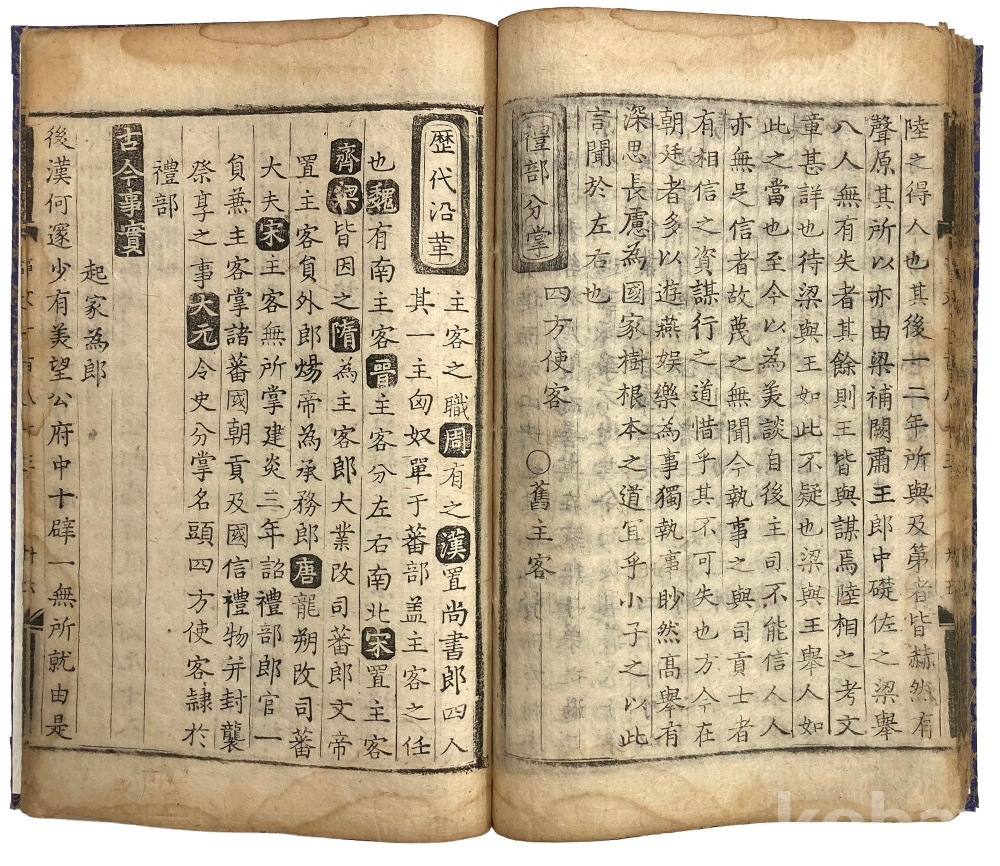 陸之得人也其後一二年所與及第者皆赫然有
聲原其所以亦由梁補闕肅王郎中礎佐之梁舉
八人無有失者其餘則王皆與謀焉陸相之考文
章甚詳也待梁與王如此不疑也梁與王舉人如
此之當也至今以為美談自後主司不能信人人
亦無足信者故蔑之無聞今執事之與司貢士者
有相信之資謀行之道惜乎其不可失也方今在
朝廷者多以遊燕娛樂為事獨執事眇然髙舉有
深思長慮為國家樹根本之道宜乎小子之以此
言聞於左右也
禮部分掌
四方使客 ○舊主客
歷代沿革
主客之職周有之漢置尚書郎四人
其一主匈奴單于蕃部蓋主客之任
也魏有南主客晉主客分左右南北宋置主客
齊梁皆因之隋為主客郎大業改司蕃郎文帝
置主客員外郎煬帝為承務郎唐龍朔改司蕃
大夫宋主客無所掌建炎三年詔禮部郎官一
負兼主客掌諸蕃國朝貢及國信禮物并封襲
祭享之事大元令史分掌名頭四方使客隸於
禮部
古今事實
起家為郎
後漢何邃少有美望公府中十辟一無所就由是
kobay